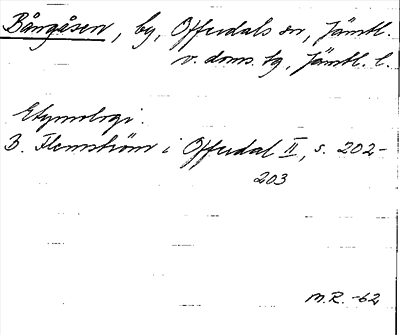 Bångåsen, by, Offerdals sn, Jämtl.
v. doms. tg, Jämtl. l.
Etymologi.
B. Flemström i Offerdal II, s. 202-
203
M.R. -62